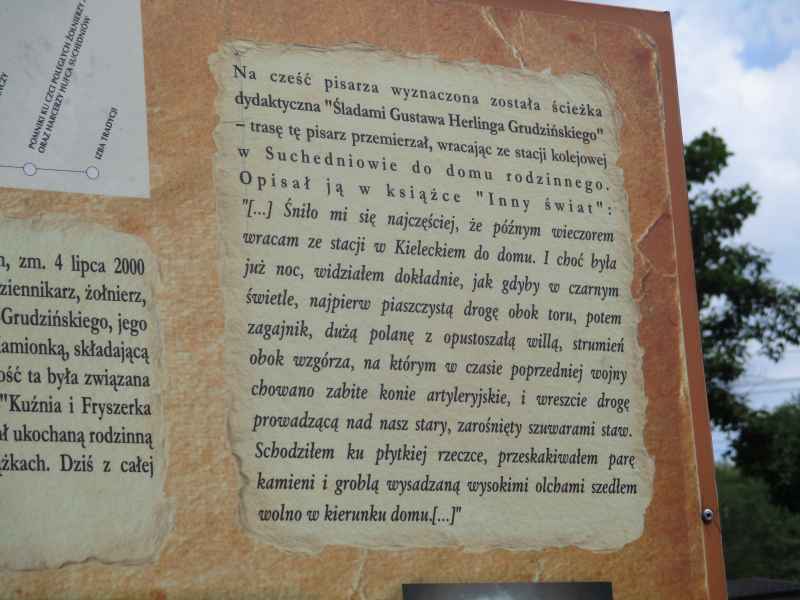 POMNIKI KU CZCI POLEGŁYCH ŻOŁNIERZY
ORAZ HARCERZY HUFCA SUCHEDNIÓW
IZBA TRADYCJI
zm. 4 lipca 2000
dziennikarz, żołnierz,
Grudzińskiego, jego
Kamionką, składającą
ość ta była związana
"Kuźnia i Fryszerka
ał ukochaną rodzinną
ążkach. Dziś z całej
Na cześć pisarza wyznaczona została ścieżka
dydaktyczna "Śladami Gustawa Herlinga Grudzińskiego"
– trasę tę pisarz przemierzał, wracając ze stacji kolejowej
w Suchedniowie do domu rodzinnego.
Opisał ją w książce "Inny świat":
"[...] Śniło mi się najczęściej, że późnym wieczorem
wracam ze stacji w Kieleckiem do domu. I choć była
już noc, widziałem dokładnie, jak gdyby w czarnym
świetle, najpierw piaszczystą drogę obok toru, potem
zagajnik, dużą polanę z opustoszałą willą, strumień
obok wzgórza, na którym w czasie poprzedniej wojny
chowano zabite konie artyleryjskie, i wreszcie drogę
prowadzącą nad nasz stary, zarośnięty szuwarami staw.
Schodziłem ku płytkiej rzeczce, przeskakiwałem parę
kamieni i groblą wysadzaną wysokimi olchami szedłem
wolno w kierunku domu.[...]"